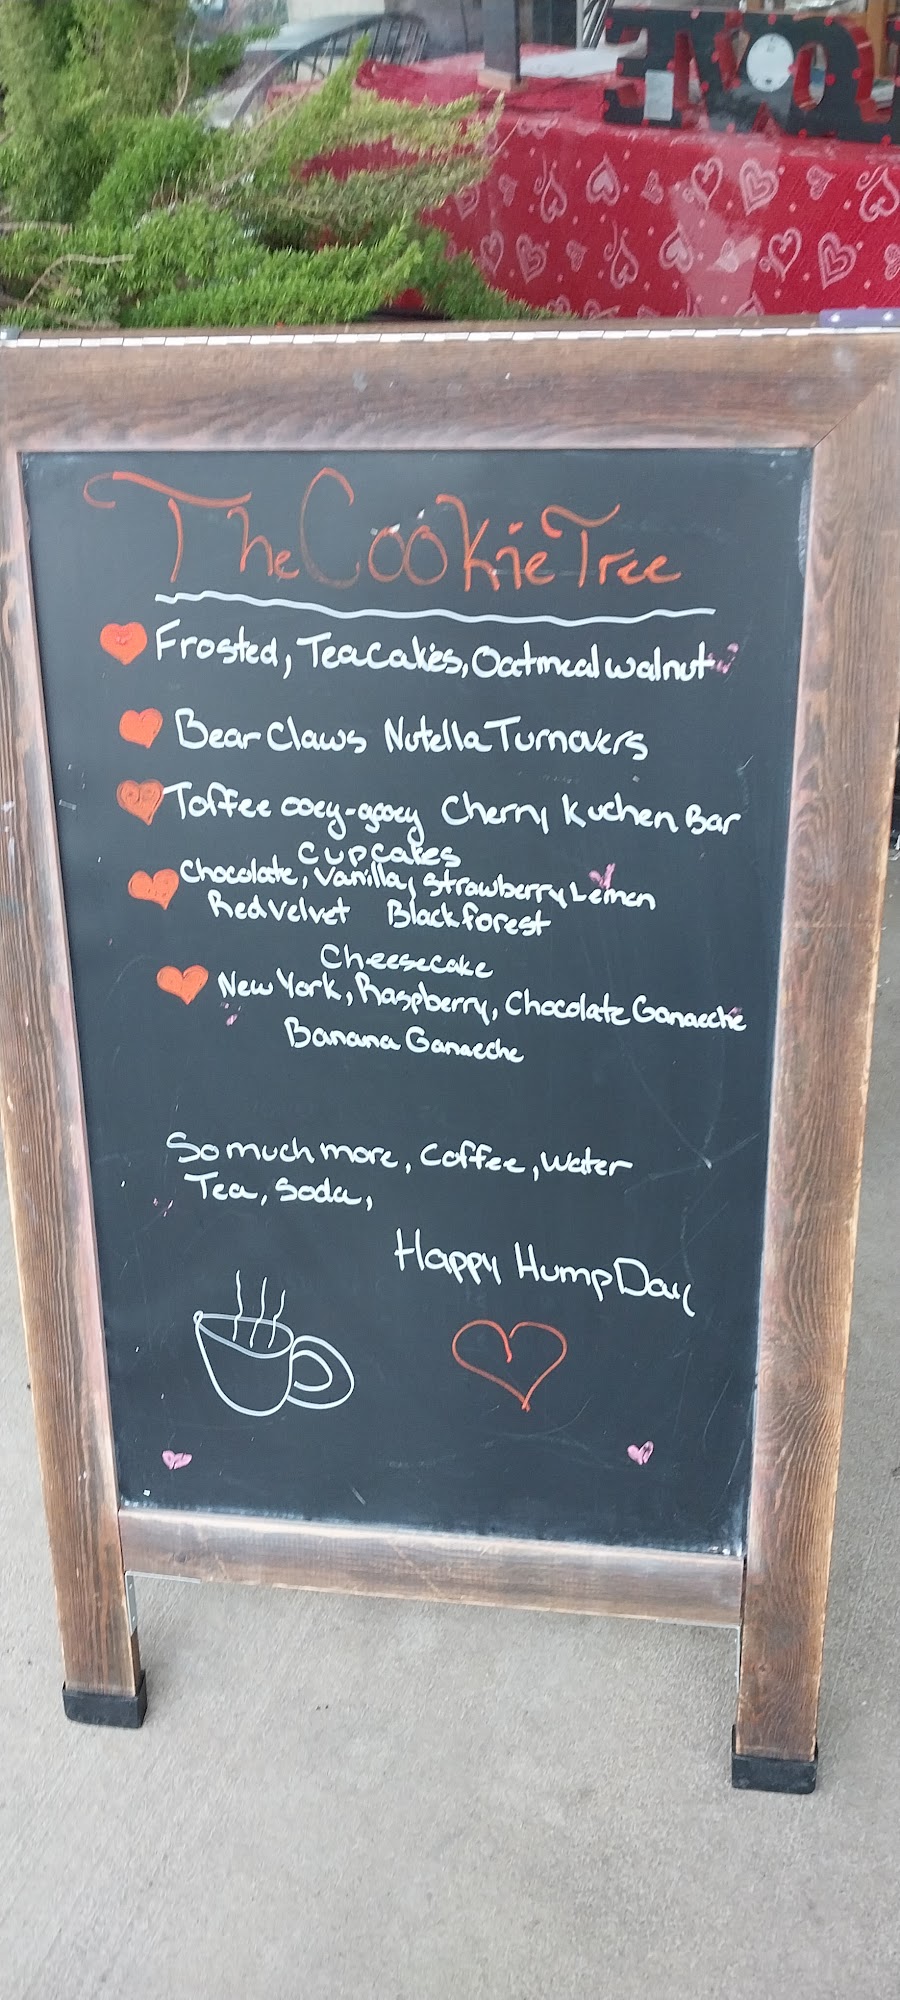 The Cookie Tree
Frosted, Teacakes, Oatmeal walnut
Bear Claws Nutella Turnovers
Toffee ooey-gooey Cherry Kuchen Bar
Cupcakes
Chocolate, Vanilla, Strawberry Lemen
Red Velvet Black forest
Cheesecake
New York, Raspberry, Chocolate Ganacche
Banana Ganacche
So much more, Coffee, Water
Tea, Soda,
Happy Hump Day